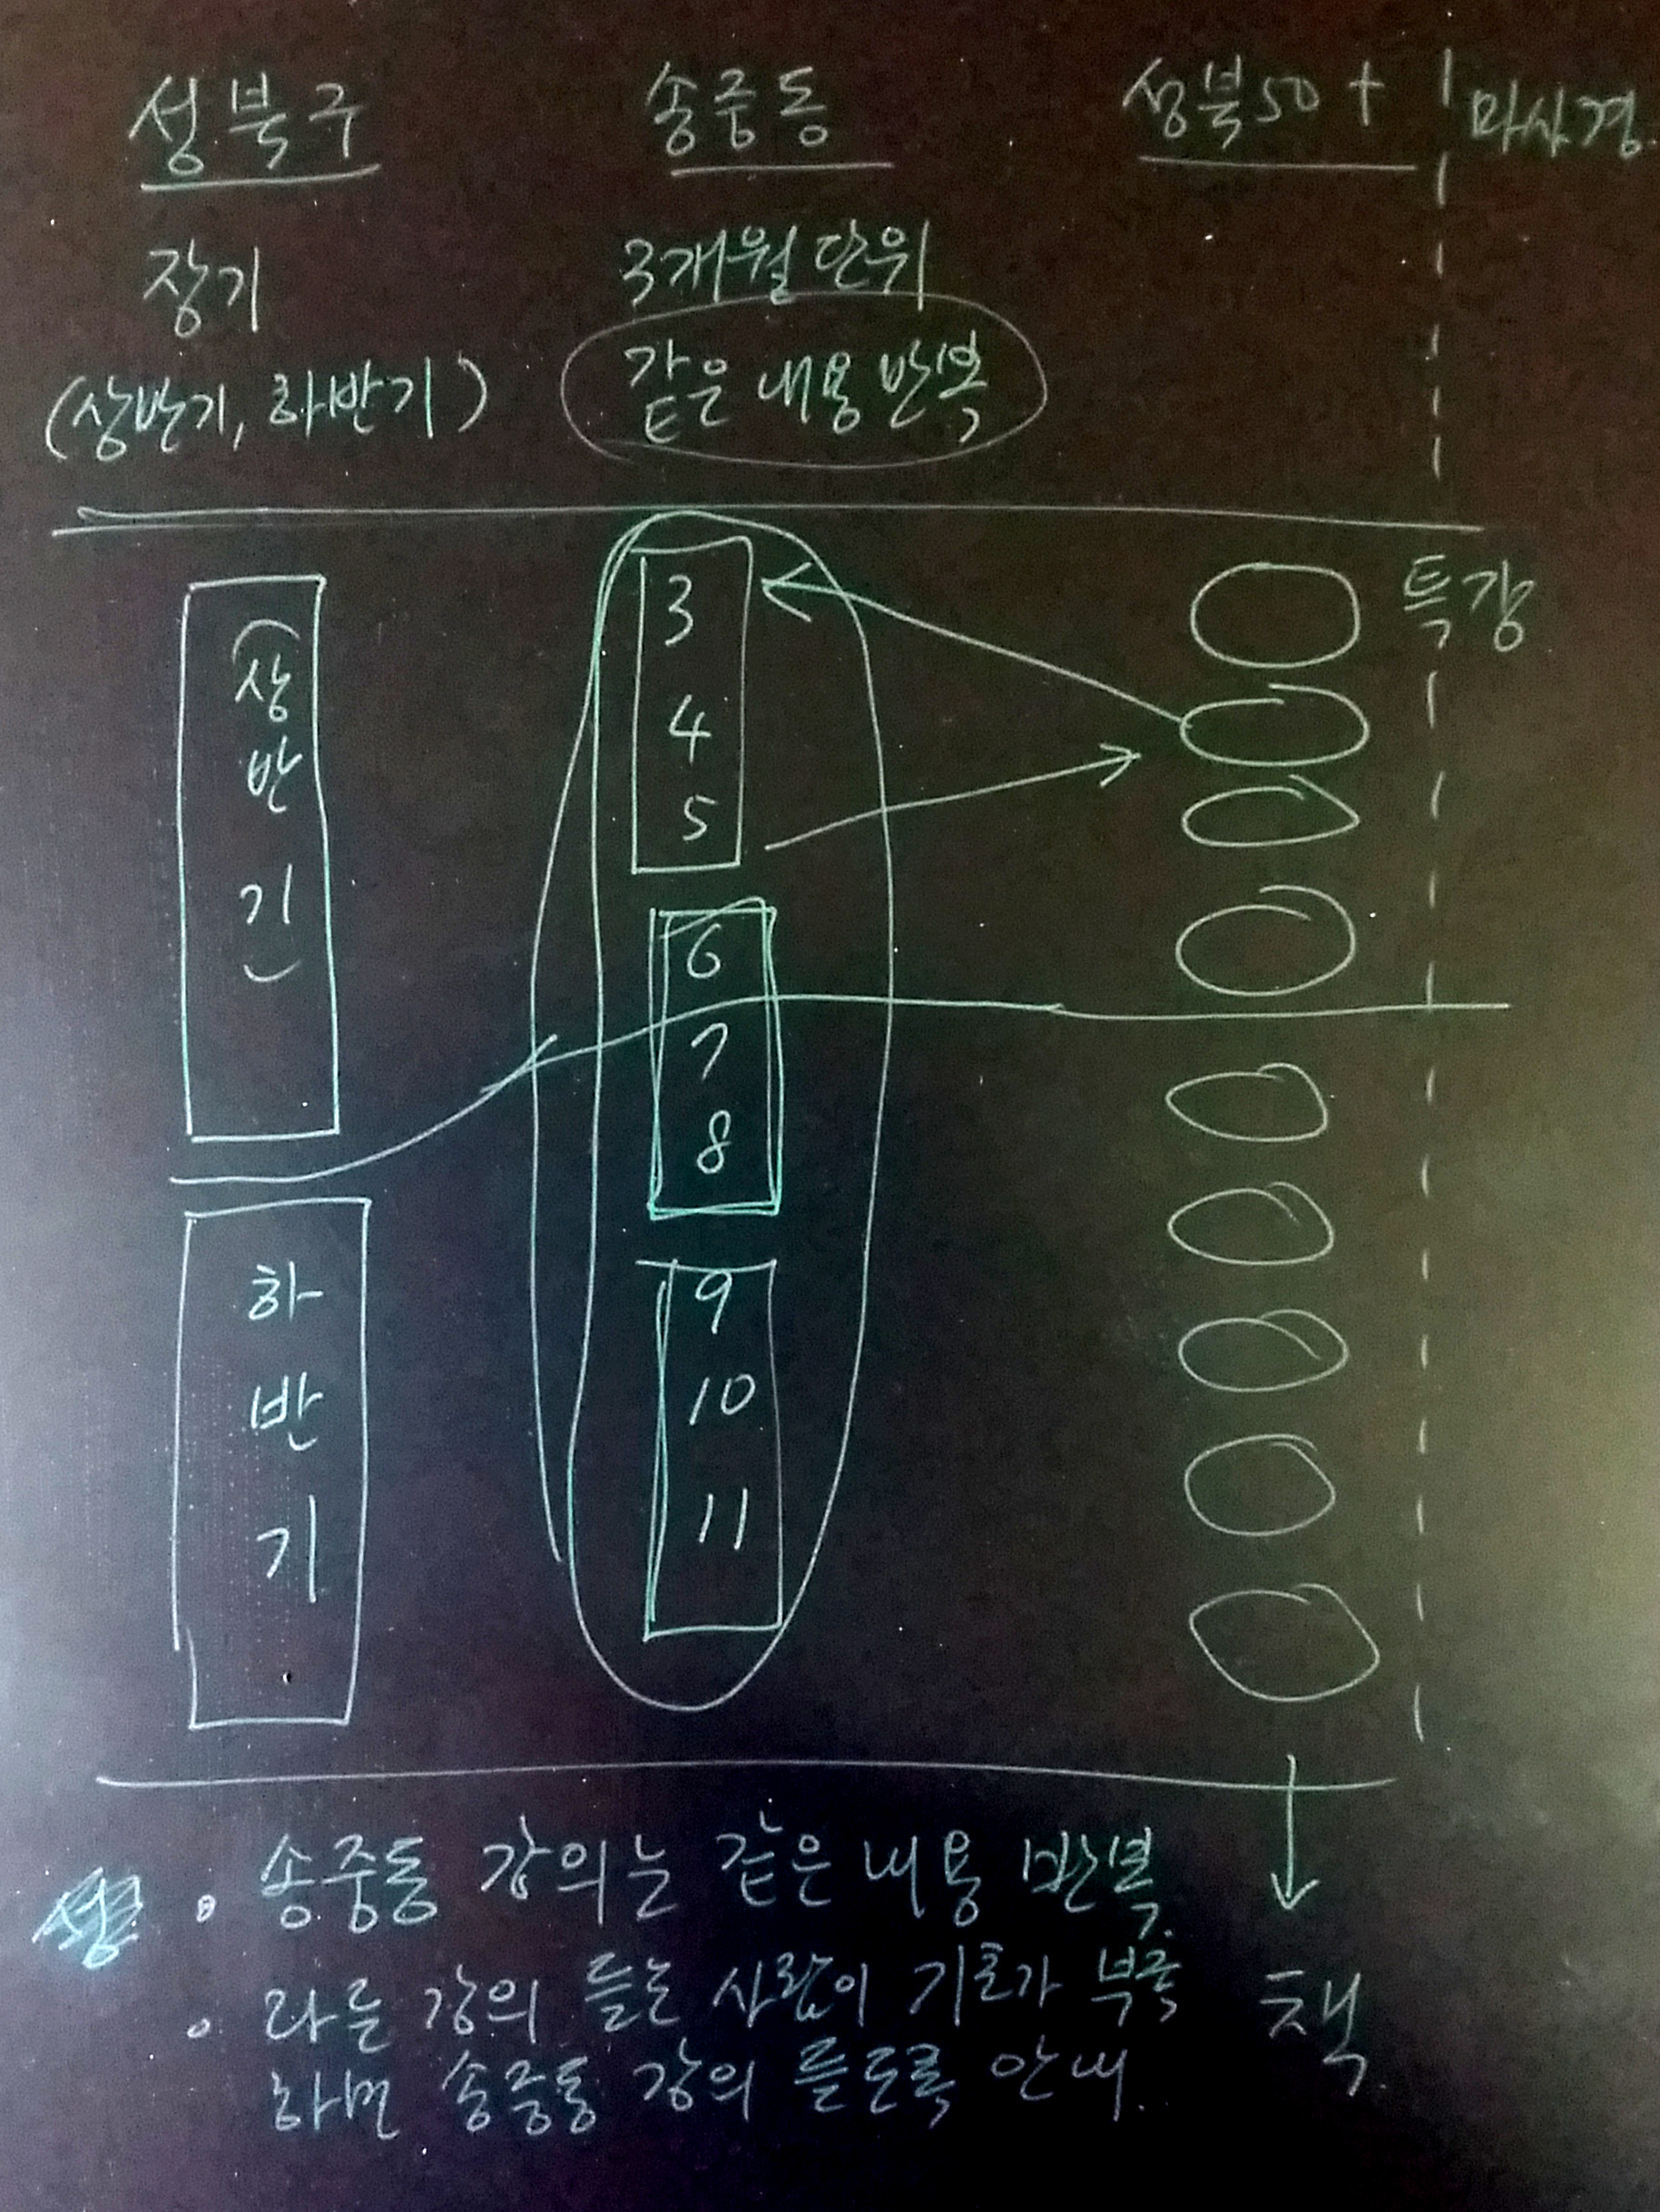 성북구
송중동
성북50+
마사경.
장기
3개월 단위
(상반기, 하반기)
같은 내용 반복
상
반
기
3
4
5
특강
6
7
8
하
반
기
9
10
11
• 송중동 강의는 같은 내용 반복.
• 다른 강의 듣는 사람이 기초가 부족
하면 송중동 강의 듣도록 안내.
책.